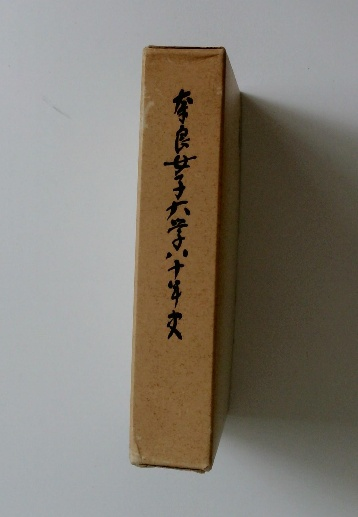 奈良女子大学八十年史